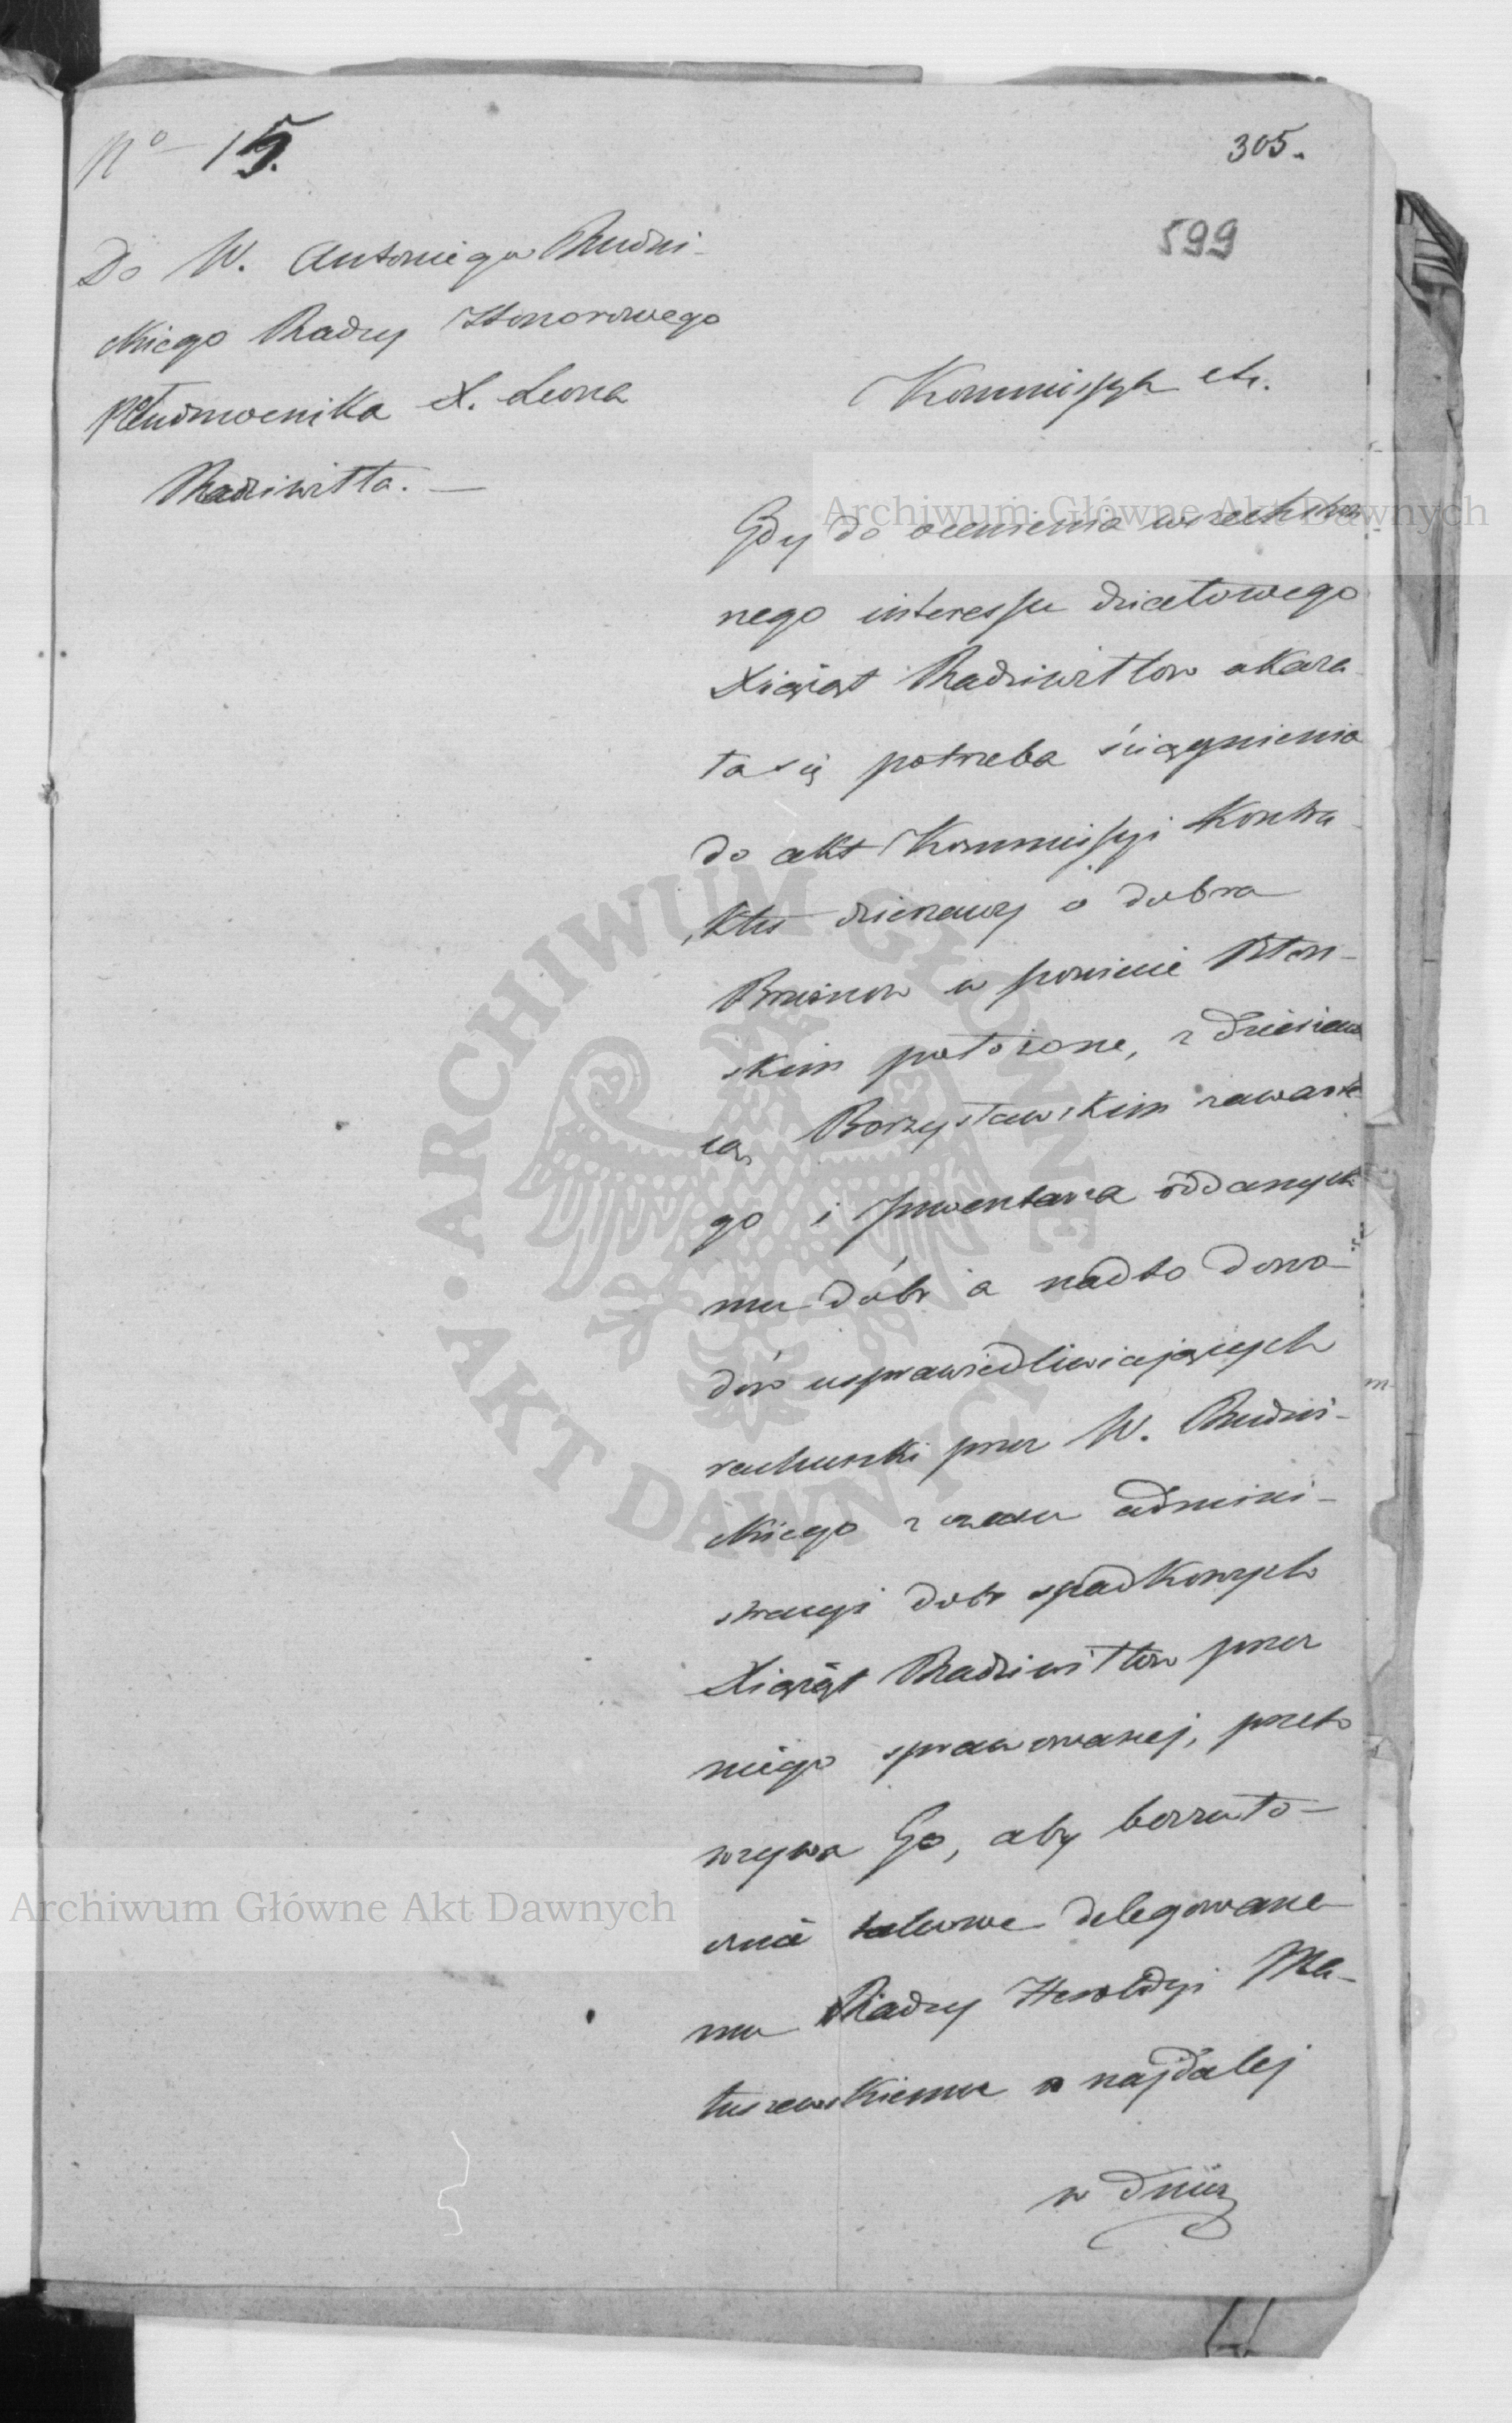 No 15.
305.
599
Do W. Antoniego Rudni-
ckiego Radzcy Honorowego
Pełnomocnika X. Leona
Radziwiłła. —
Kommissya etc.
Gdy do ocenienia wszechstron
nego interessu działowego
Xiążąt Radziwiłłow okaza
ła się potrzeba ściągnienia
do akt Kommissyi Kontra
ktu dzierzawy o dobra
w powiecie
skim położone, z Dzierzaw
cą Borzysławskim zawarte
go i Inwentarza oddanych
mu dóbr a nadto dowo-
dów usprawiedliwiających
rachunki przez W. Rudni-
ckiego z czasu admini-
stracyi dobr spadkowych
Xiążąt Radziwiłłow przez
niego sprawowanej, przeto
wzywa Go, aby bezzwło-
cznie takowe delegowane
mu Radzcy Heroldyi Ma-
tuszewskiemu a najdalej
w dniu
Archiwum Główne Akt Dawnych
Archiwum Główne Akt Dawnych
ARCHIWUM GŁÓWNE AKT DAWNYCH